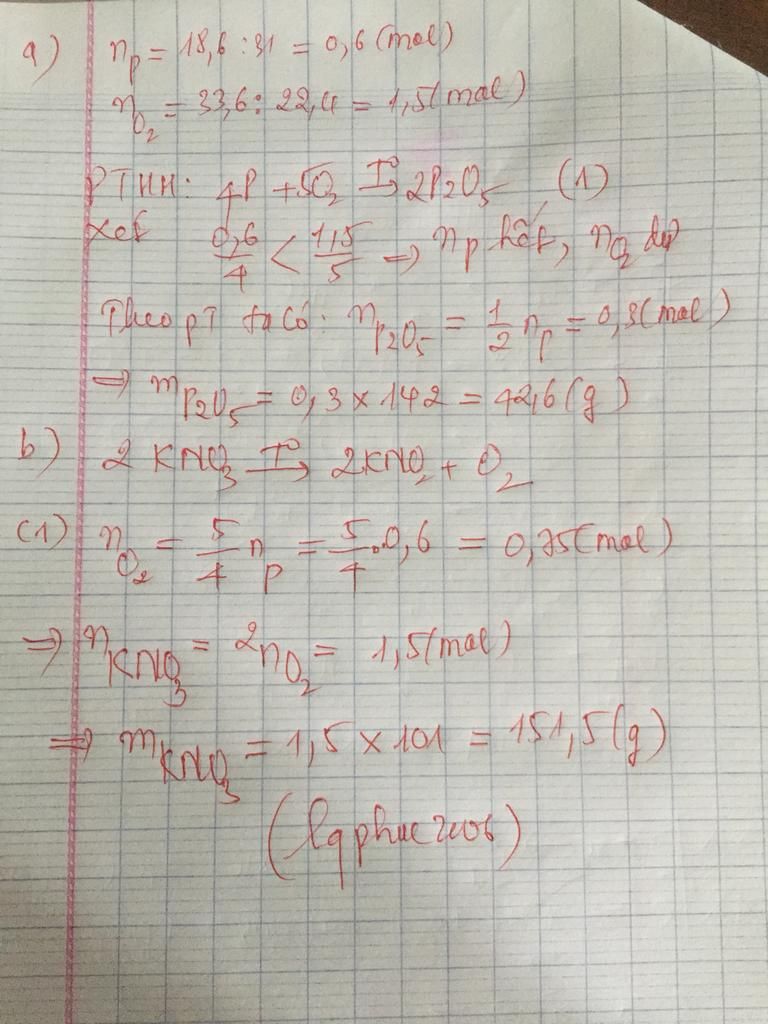 a) nP = 18,6 : 31 = 0,6 (mol)
nO2 = 33,6 : 22,4 = 1,5 (mol)
PTHH: 4P + 5O2 →(T°) 2P2O5 (1)
Xét 0,6/4 < 1,5/5 ⇒ nP hết, nO2 dư
Theo pT ta có: nP2O5 = 1/2 nP = 0,3 (mol)
⇒ mP2O5 = 0,3 × 142 = 42,6 (g)
b) 2KNO3 →(T°) 2KNO2 + O2
(1) nO2 = 5/4 nP = 5/4 . 0,6 = 0,75 (mol)
⇒ nKNO3 = 2nO2 = 1,5 (mol)
⇒ mKNO3 = 1,5 × 101 = 151,5 (g)
(lqphuc2006)